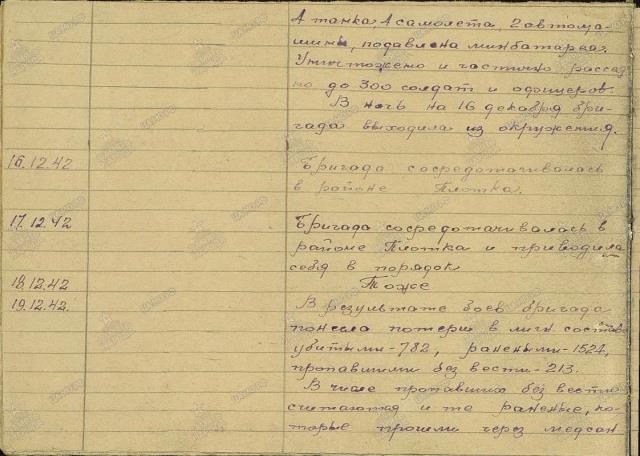 4 танка, 1 самолета, 2 автома-
шины, подавлена минбатарея.
Уничтожено и частично рассея
но до 300 солдат и офицеров.
В ночь на 16 декабря бри-
гада выходила из окружения.
16.12.42 Бригада сосредотачивалась
в районе Плотка.
17.12.42 Бригада сосредотачивалась в
районе Плотка и приводила
себя в порядок
18.12.42 Тоже
19.12.42. В результате боев бригада
понесла потери в личн составе
убитыми - 782, ранеными - 1524,
пропавшими без вести - 213.
В числе пропавших без вести
считаются и те раненые, ко-
торые прошли через медсан